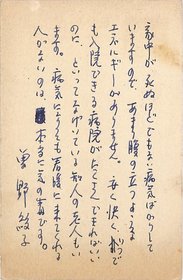 家中が死ぬほどでもない病気ばかりして
いますので、あまり腹の立つような
エネルギーがありません。安く快く、いつで
も入院できる病院がたくさんできればいい、
といってなげいている知人の老人もい
ます。病気になっても看護に来てくれる
人がないのは、本当に気の毒です。
曽野綾子